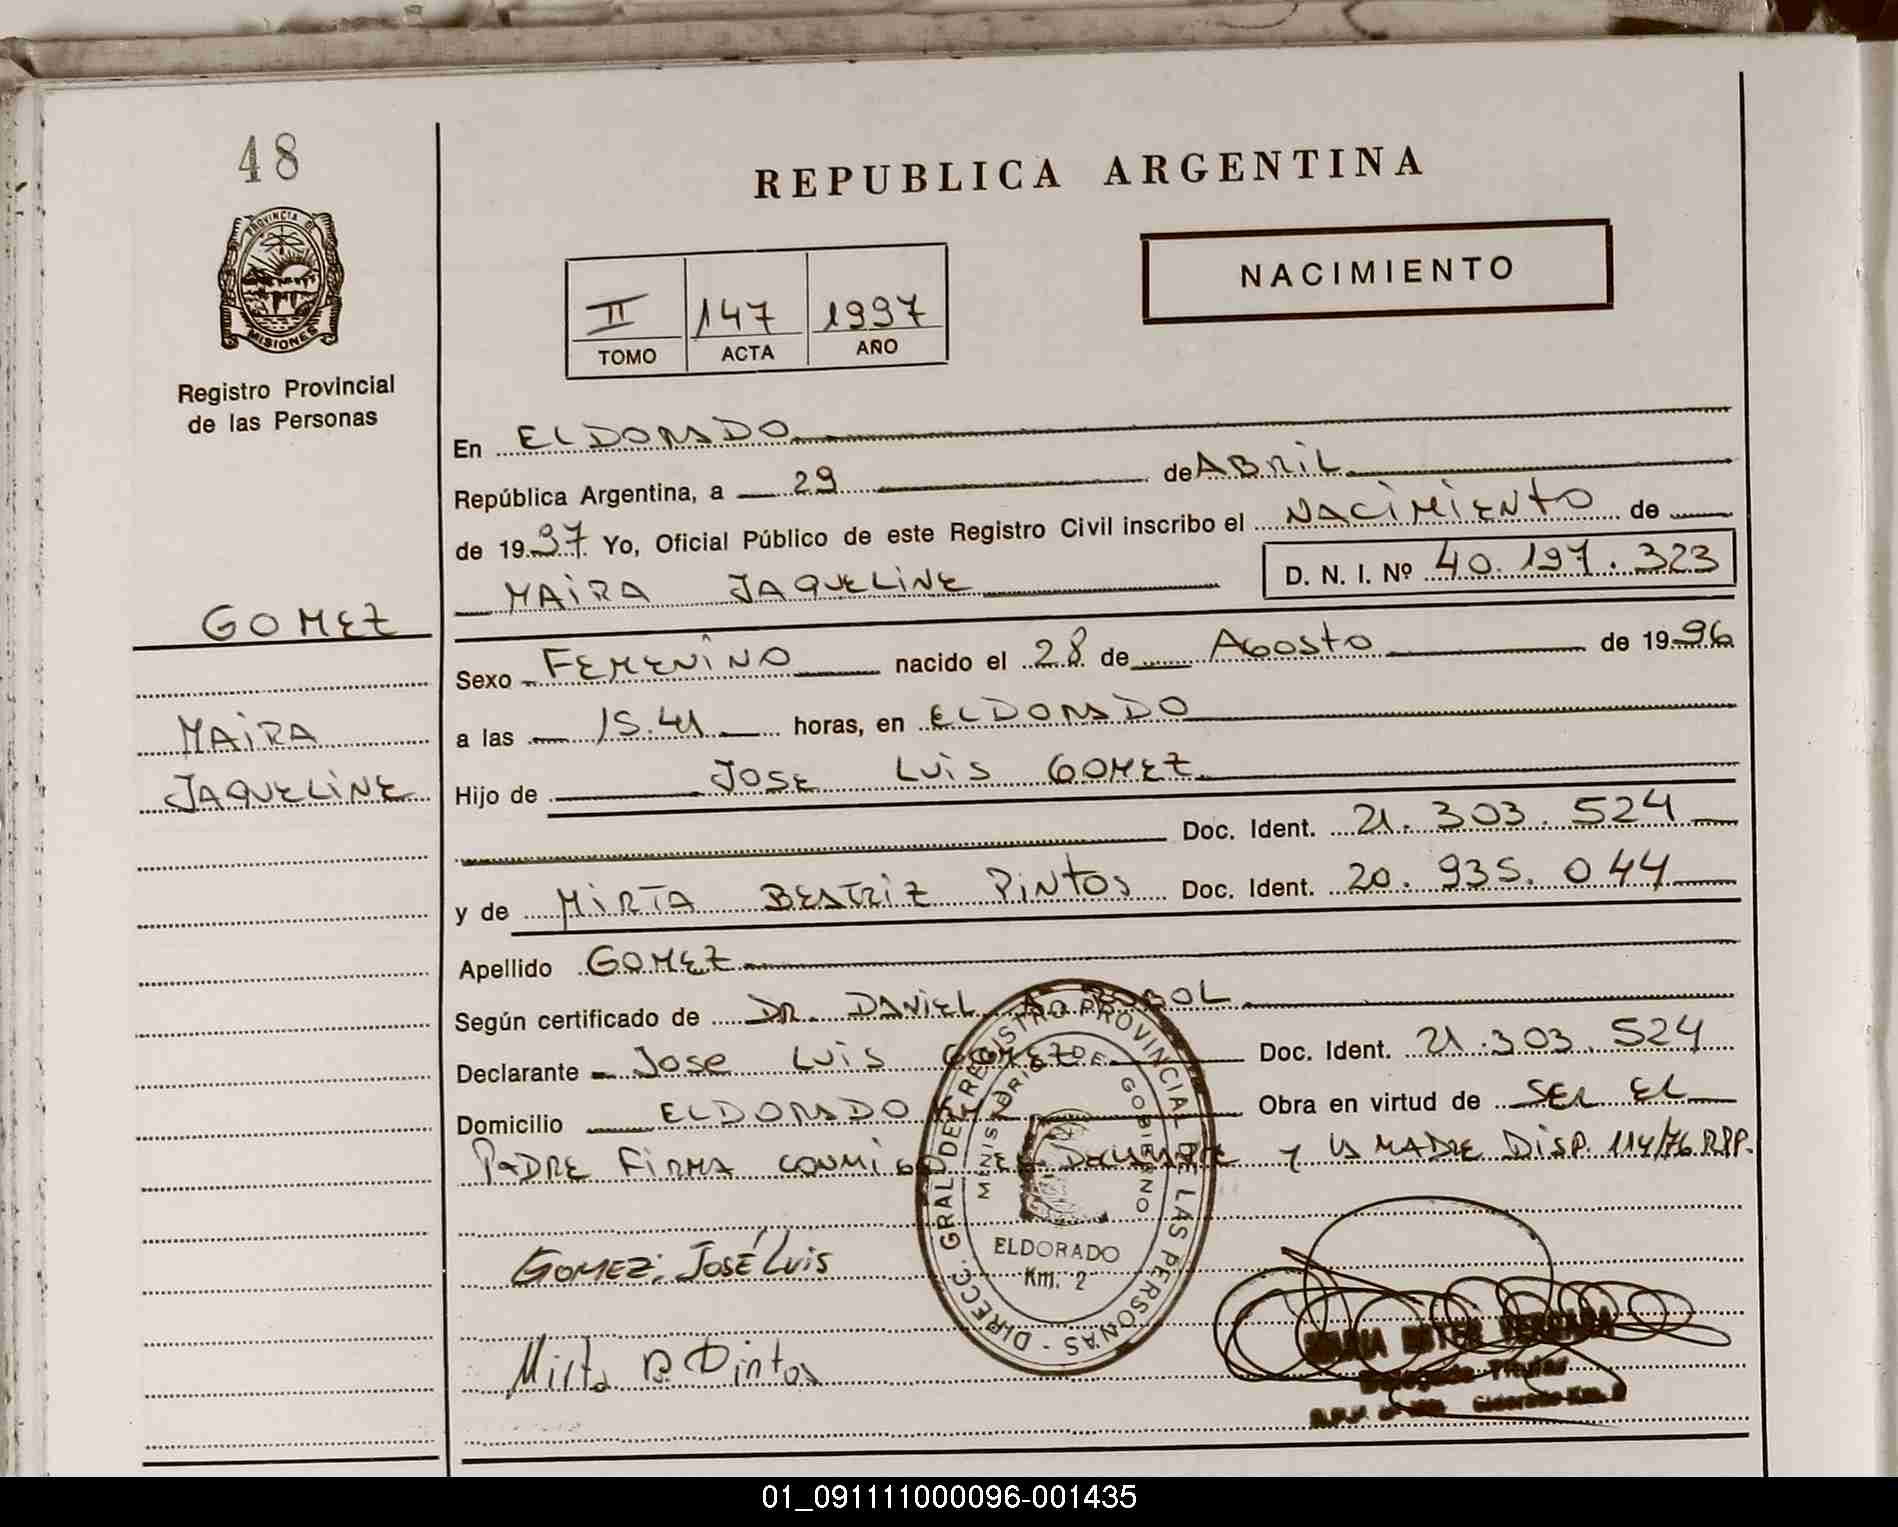 48
PROVINCIA DE
MISIONES
Registro Provincial
de las Personas
GOMEZ
MAIRA
JAQUELINE
REPUBLICA ARGENTINA
NACIMIENTO
II 147 1997
TOMO ACTA AÑO
En ELDORADO
República Argentina, a 29 de ABRIL
de 1997 Yo, Oficial Público de este Registro Civil inscribo el NACIMIENTO de
MAIRA JAQUELINE D. N. I. Nº 40.197.323
Sexo FEMENINO nacido el 28 de AGOSTO de 1996
a las 15.41 horas, en ELDORADO
Hijo de JOSE LUIS GOMEZ
Doc. Ident. 21.303.524
y de MIRTA BEATRIZ PINTOS Doc. Ident. 20.935.044
Apellido GOMEZ
Según certificado de DR. DANIEL A.
Declarante JOSE LUIS GOMEZ Doc. Ident. 21.303.524
Domicilio ELDORADO Obra en virtud de SER EL
PADRE FIRMA CONMIGO EL Y LA MADRE DISP. 114/76 RPP.
DIRECC. GRAL. DEL REGISTRO PROVINCIAL DE LAS PERSONAS -
MINISTERIO DE GOBIERNO
ELDORADO
Km. 2
GOMEZ; JOSÉ LUIS
Mirta B Pintos
MARIA ESTER VERGARA
Delegada Titular
Eldorado Km. 2
01_091111000096-001435